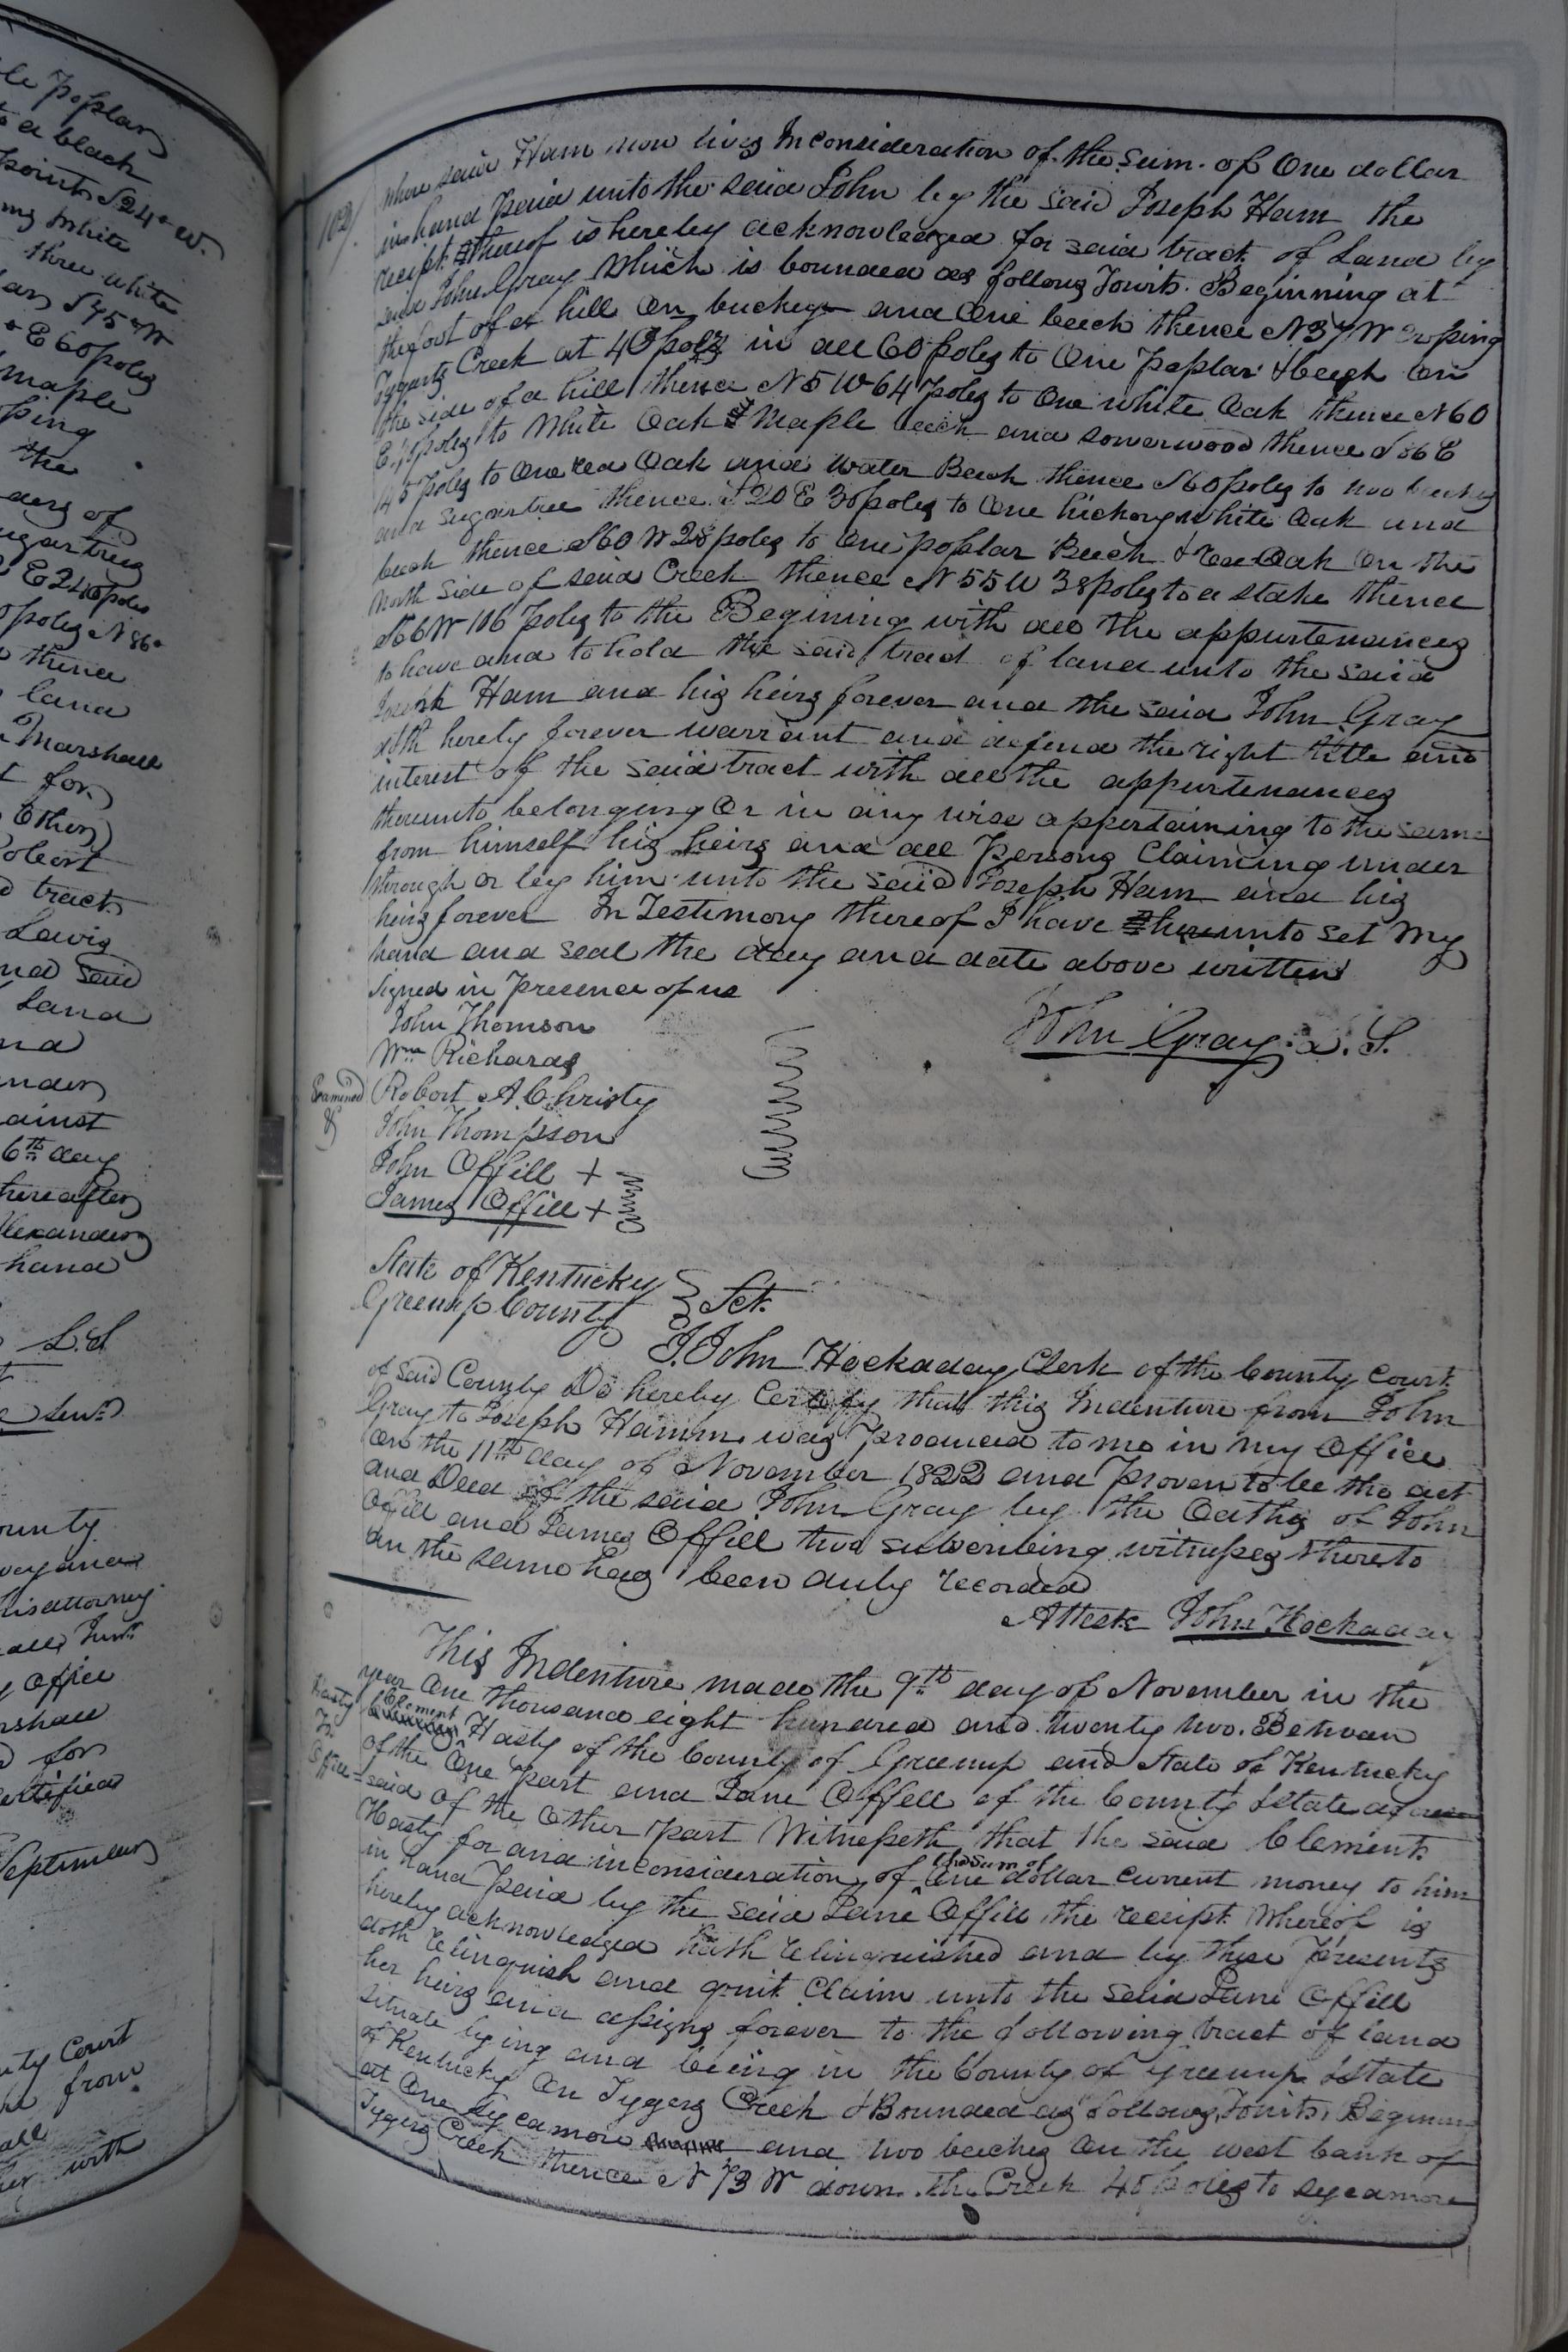 le Poplar
to a black
points S 24° W.
ing White
three white
S 45° W
E 60 poles
maple
ping
the
ders of
ugartrees
E 240 poles
poles N 86°
thence
land
Marshall
t for
Other
Robert
tract
Lewis
and said
Land
and
under
ainst
6th day
hereafter
Alexander
hand
L.S
ounty
his attorney
y Office
rshall
for
ertified
September
nty Court
from
with
102/
where said Ham now lives In consideration of the sum of One dollar
in hand paid unto the said John by the said Joseph Ham the
receipt thereof is hereby acknowledged for said tract of Land by
said John Gray Which is bounded as follows Towits. Beginning at
the foot of a hill On buckeye and One beech thence N 37 W Croping
Tygarts Creek at 40 poles in all 60 poles to One Poplar & beech On
the side of a hill thence N 5 W 64 poles to One white Oak thence N 60
E poles to White Oak & Maple beech and sowerwood thence S 86 E
145 poles to One red Oak and Water Beech thence S 60 poles to two beeches
and a sugartree thence S 20 E 30 poles to One hickory White Oak and
beech thence S 60 W 28 poles to One poplar Beech & red Oak On the
North side of said Creek thence N 55 W 38 poles to a stake thence
S 6 W 106 Poles to the Begining with all the appurtenances
to have and to hold the said tract of land unto the said
Joseph Ham and his heirs forever and the said John Gray
doth hereby forever warrant and defend the right title and
interest of the said tract with all the appurtenances
thereunto belonging Or in any wise appertaining to the same
from himself his heirs and all Persons Claiming under
through or by him unto the said Joseph Ham and his
heirs forever In Testimony thereof I have hereunto set My
hand and seal the day and date above written
Signed in Presence of us
John Gray. L. S.
John Thomson
Wm Richards
Examined
Robert A. Christy
John Thompson
John Offill +
James Offill +
State of Kentucky
Greenup County
Sct.
I. John Hockaday Clerk of the County Court
of said County Do hereby Certify that this Indenture from John
Gray to Joseph Hamm was Produced to me in my Office
on the 11th day of November 1822 and Proven to be the act
and Deed of the said John Gray by the Oaths of John
Offill and James Offill two subscribing witnesses thereto
an the same has been duly recorded
Attest John Hockaday
This Indenture made the 9th day of November in the
year One thousand eight hundred and twenty two. Between
Hasty
To
Offill
Clement
Hasty of the County of Greenup and State of Kentucky
of the One part and Jane Offill of the County & State afore
said of the Other part Witnesseth that the said Clement
Hasty for and in consideration of the sum of One dollar current money to him
in hand Paid by the said Jane Offill the receipt Whereof is
hereby acknowledged hath relinquished and by these Presents
doth relinquish and quit Claim unto the said Jane Offill
her heirs and assigns forever to the following tract of land
situate lying and being in the County of Greenup & State
of Kentucky On Tygers Creek & Bounded as follows, Towits, Beginning
at One Sycamore and two beeches On the west bank of
Tygers Creek thence N 73 W down the Creek 40 poles to sycamore